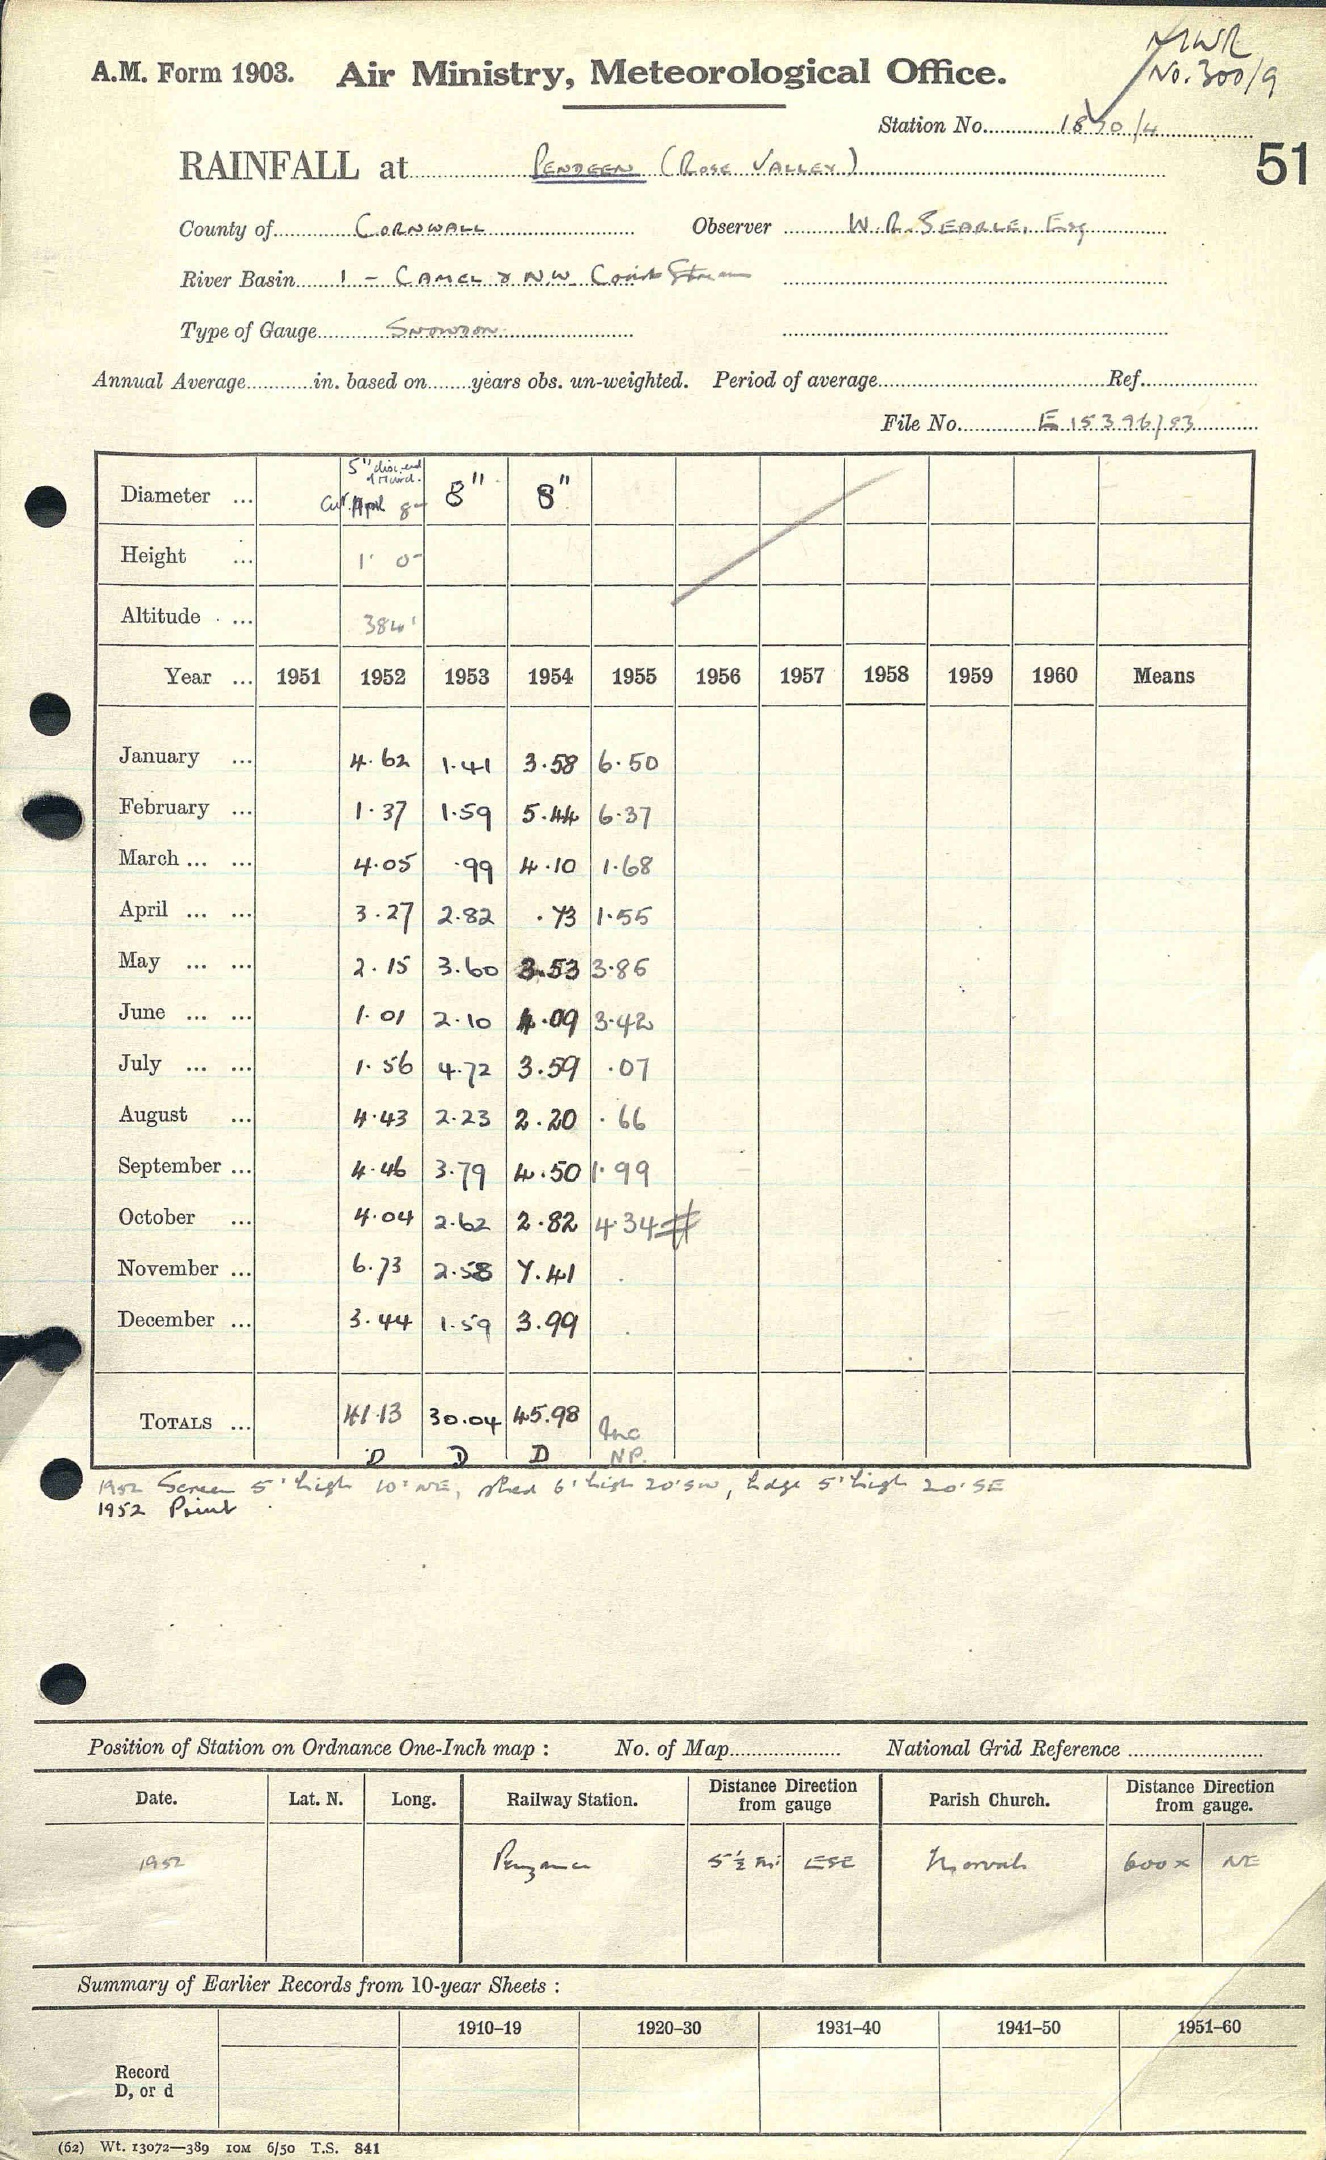 MWR
No. 300/9
A.M. Form 1903. Air Ministry, Meteorological Office.
Station No. 1870/4
51
RAINFALL at PENDEEN (ROSE VALLEY)
County of CORNWALL Observer W.R. SEARLE, Esq
River Basin 1 - CAMEL & N.W. Coast Streams
Type of Gauge SNOWDON
Annual Average in. based on years obs. un-weighted. Period of average Ref.
File No. E 15396/53
Diameter ... 5" disc. end of March. April 8" 8" 8"
Height ... 1' 0"
Altitude ... 384'
Year ... 1951 1952 1953 1954 1955 1956 1957 1958 1959 1960 Means
January ... 4.62 1.41 3.58 6.50
February ... 1.37 1.59 5.44 6.37
March ... ... 4.05 .99 4.10 1.68
April ... ... 3.27 2.82 .73 1.55
May ... ... 2.15 3.60 3.53 3.86
June ... ... 1.01 2.10 4.09 3.42
July ... ... 1.56 4.72 3.59 .07
August ... 4.43 2.23 2.20 .66
September ... 4.46 3.79 4.50 1.99
October ... 4.04 2.62 2.82 4.34 #
November ... 6.73 2.58 7.41
December ... 3.44 1.59 3.99
TOTALS ... 41.13 30.04 45.98 Inc
D D D NP.
1952 Screen 5' high 10' NE, shed 6' high 20' SW, hedge 5' high 20' SE
1952 Point
Position of Station on Ordnance One-Inch map : No. of Map National Grid Reference
Date. Lat. N. Long. Railway Station. Distance Direction from gauge Parish Church. Distance Direction from gauge.
1952 Penzance 5½ mi ESE Morvah 600x NE
Summary of Earlier Records from 10-year Sheets :
1910–19 1920–30 1931–40 1941–50 1951–60
Record
D, or d
(62) Wt. 13072—389 10M 6/50 T.S. 841